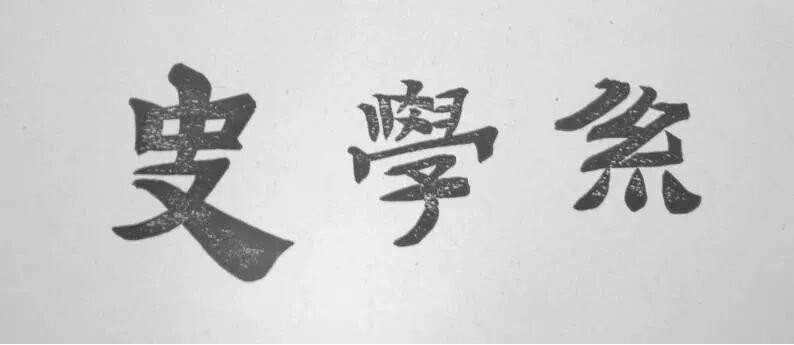 史學系